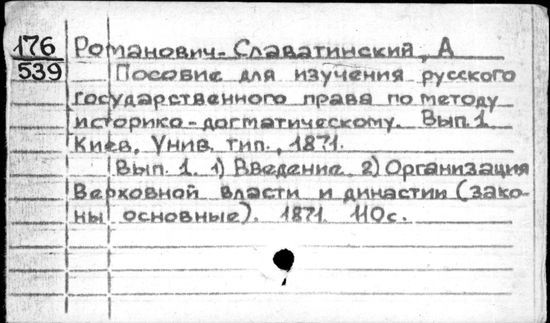 176 Романович-Славатинский, А
539 Пособие для изучения русского
государственного права по методу
историко-догматическому. Вып.1
Киев, Унив. тип., 1871.
Вып. 1. 1) Введение 2) Организация
Верховной власти и династии (зако-
ны основные). 1871. 110с.